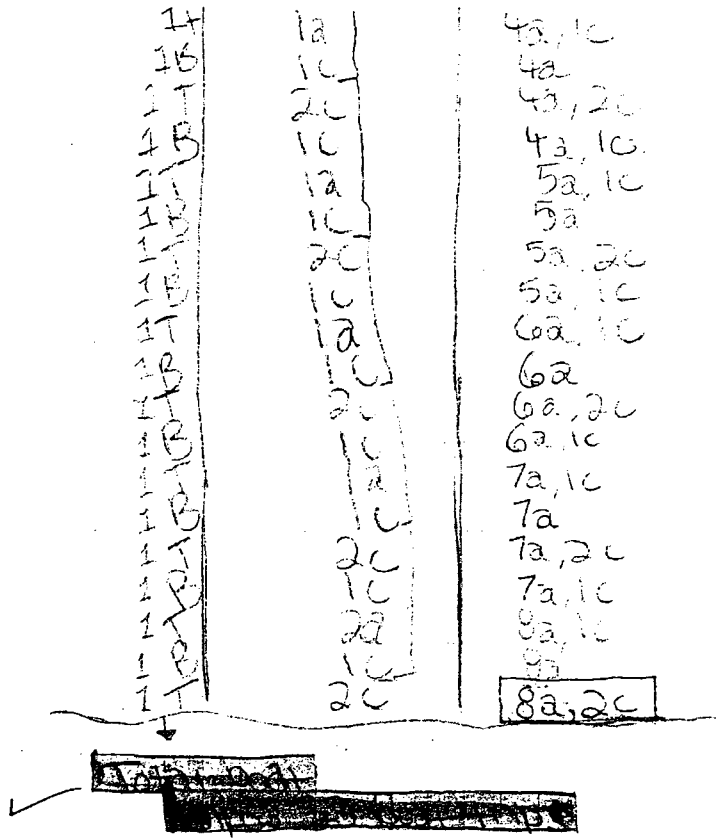 1T 1a 4a, 1c
1B 1c 4a
1 T 2c 4a, 2c
1 B 1c 4a, 1c
1 T 1a 5a, 1c
1 B 1c 5a
1 T 2c 5a, 2c
1 B 1c 5a, 1c
1 T 1a 6a, 1c
1 B 1c 6a
1 T 2c 6a, 2c
1 B 1c 6a, 1c
1 T 1a 7a, 1c
1 B 1c 7a
1 T 2c 7a, 2c
1 B 1c 7a, 1c
1 T 2a 8a, 1c
1 B 1c 8a
1 T 2c 8a, 2c